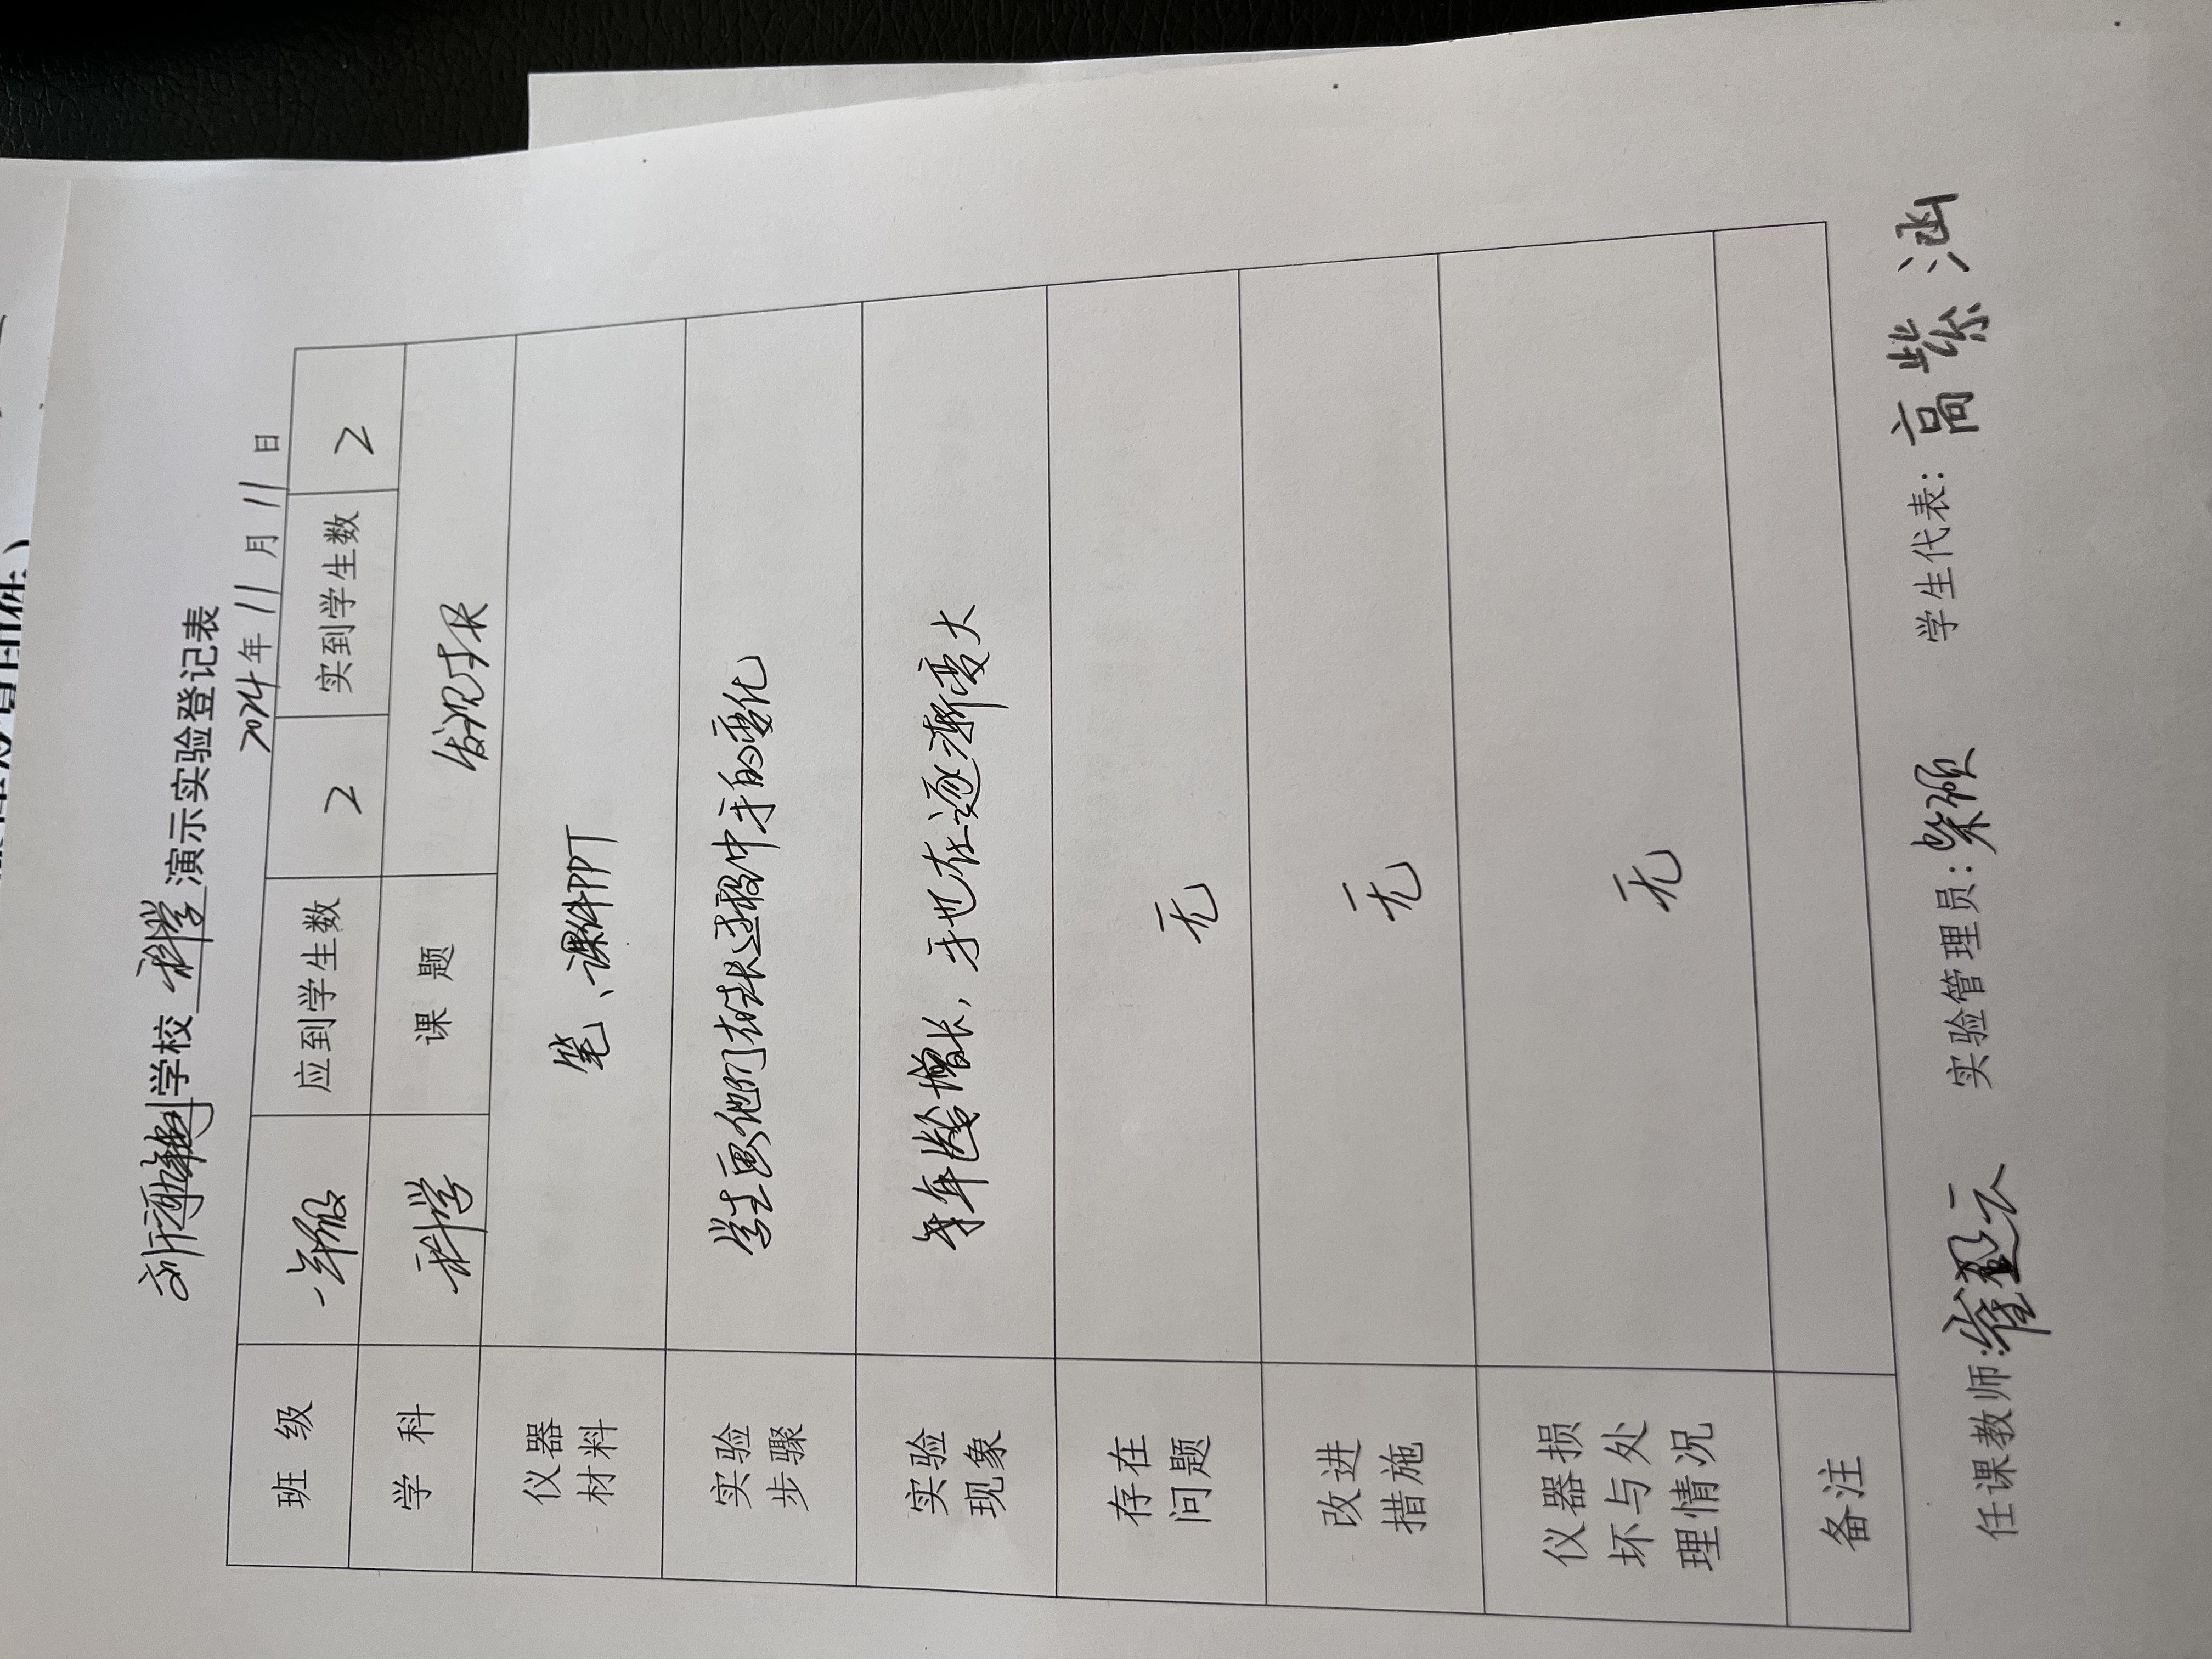 学校 科学 演示实验登记表
2024年 11 月 11 日
班 级 一年级 应到学生数 2 实到学生数 2
学 科 科学 课 题 发现生长
仪器
材料
笔、课件PPT
实验
步骤
学生画他们在成长过程中手的变化
实验
现象
年龄增长,手也在逐渐变大
存在
问题
无
改进
措施
无
仪器损
坏与处
理情况
无
备注
任课教师: 崔 云 实验管理员: 学生代表: 高紫涵